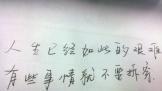 人生已经如此的艰难
有些事情就不要拆穿